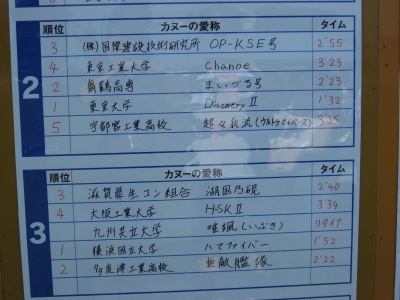 2
順位 カヌーの愛称 タイム
3 (株)国際建設技術研究所 OP-KSE号 2'55
4 東京工業大学 Chanoe 3'23
2 舞鶴高専 まいづる号 2'23
1 東京大学 Discovery II 1'32
5 宇都宮工業高校 超々我流(ウルトラマイペース) 3'35
3
順位 カヌーの愛称 タイム
3 滋賀県生コン組合 湖国乃硯 2'40
4 大阪工業大学 H·SK II 3'34
九州共立大学 唯颯(いぶき) リタイア
1 横浜国立大学 ハマファイバー 1'52
2 多度津工業高校 無敵艦隊 2'22